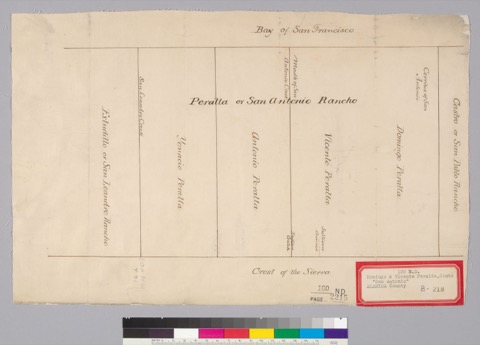 Bay of San Francisco
Peralta or San Antonio Rancho
Estudillo or San Leandro Rancho
San Leandro Creek
Ygnacio Peralta
Antonio Peralta
Mouth of San
Antonio Creek
Vicente Peralta
Domingo Peralta
Cerritos of San
Antonio
Castro or San Pablo Rancho
Crest of the Sierra
100 N.D.
PAGE
100 N.D.
Domingo & Vicente Peralta, Clmts
"San Antonio"
Alameda County
B-218